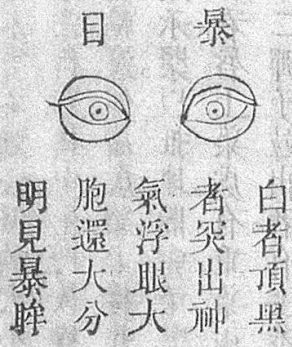 暴目
白者頂黑
者突出神
氣浮眼大
胞還大分
明見暴眸